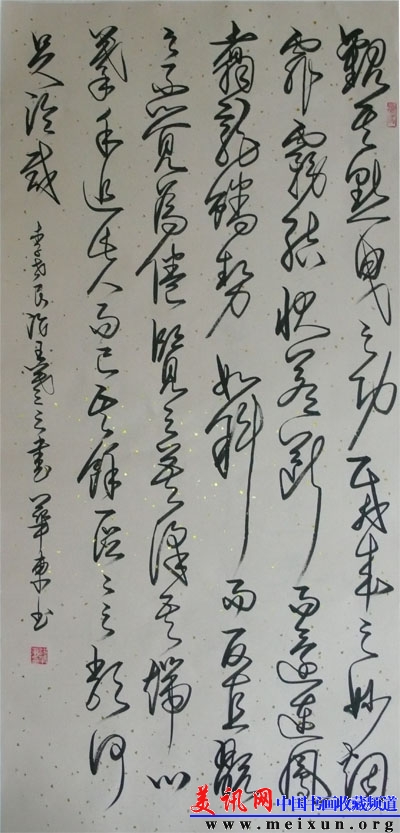 觀其點曳之功裁成之妙烟
霏霧結狀若斷而還連鳳
翥龍蟠勢如斜而反直翫
之不覺為倦覽之莫識其端心
慕手追此人而已其餘區々之類何
足論哉
李世民論王羲之書 華東书
美讯网 中国书画收藏频道
www.meixun.org